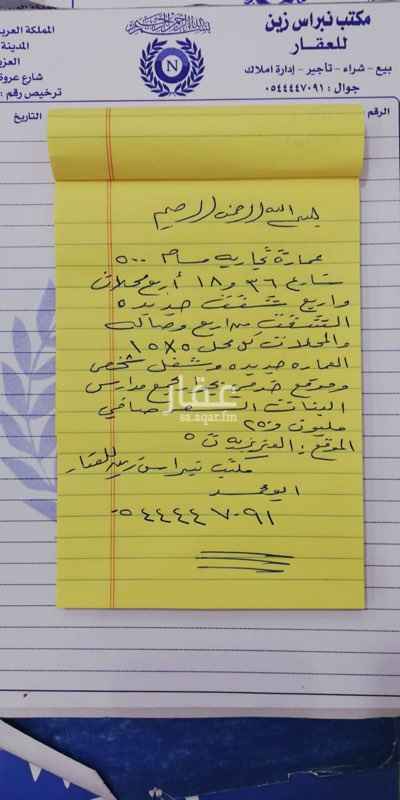 مكتب نبراس زين
للعقار
بيع - شراء - تأجير - إدارة املاك
جوال : ٠٥٤٤٤٤٧٠٩١
المملكة العربي
المدينة
العزيز
شارع عروة
ترخيص رقم :
N
الرقم
التاريخ
بسم الله الرحمن الرحيم
عمارة تجاريه مساحه ٥٠٠
شارع ٣٦ و١٨ أربع محلات
واربع شقق جديده
الشقق من اربع وصاله
والمحلات كل محل ٥×١٥
العماره جديده وشغل شخصي
وموقع مدارس
البنات صافي
مليون و٢٥٠
الموقع : العزيزيه
مكتب نبراس زين للعقار
ابو محمد
٠٥٤٤٤٤٧٠٩١
عقار
sa.aqar.fm